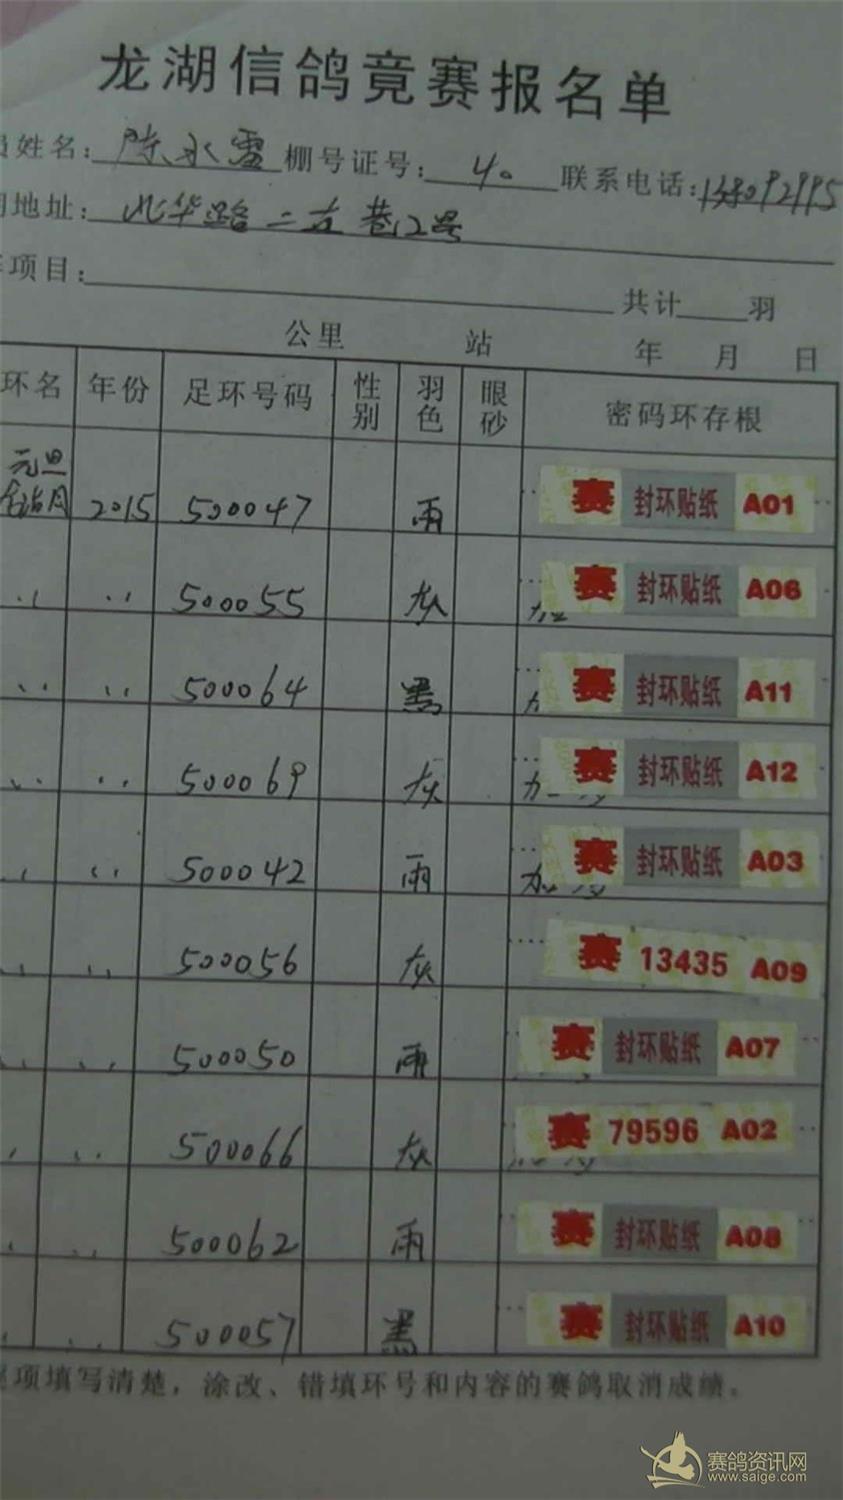 龙湖信鸽竟赛报名单
员姓名: 陈永雷 棚号证号: 40 联系电话:
地址: 路二 巷12号
项目: 共计 羽
公里 站 年 月 日
环名 年份 足环号码 性别 羽色 眼砂 密码环存根
元旦
2015 500047 雨 赛 封环贴纸 A01
〃 〃 500055 灰 赛 封环贴纸 A06
〃 〃 500064 黑 赛 封环贴纸 A11
〃 〃 500069 灰 赛 封环贴纸 A12
〃 〃 500042 雨 赛 封环贴纸 A03
〃 〃 500056 灰 赛 13435 A09
〃 〃 500050 雨 赛 封环贴纸 A07
〃 〃 500066 灰 赛 79596 A02
〃 〃 500062 雨 赛 封环贴纸 A08
〃 〃 500057 黑 赛 封环贴纸 A10
项填写清楚，涂改、错填环号和内容的赛鸽取消成绩。
赛鸽资讯网
www.saige.com